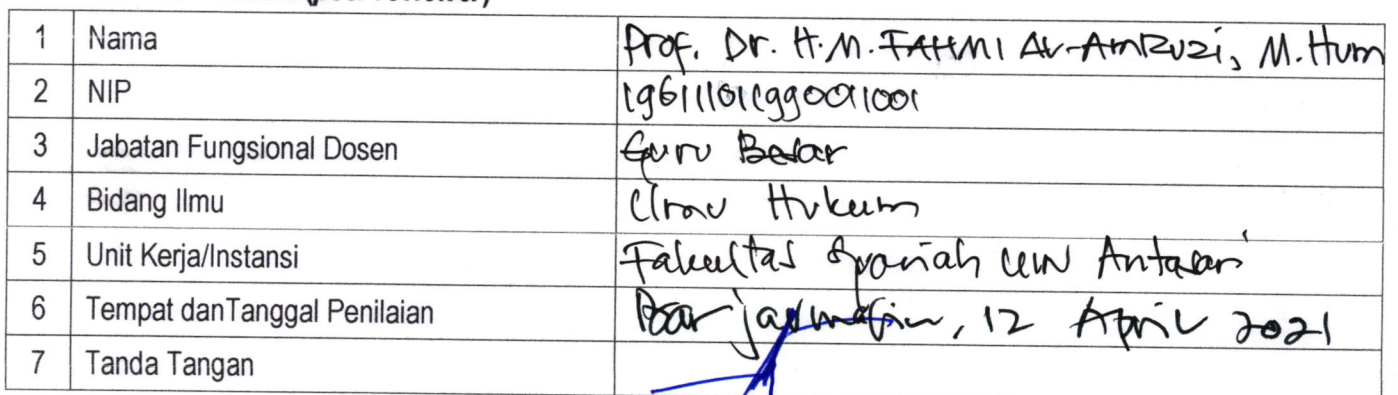 1 Nama Prof. Dr. H.M. FAHMI AL-AMRUZI, M.Hum
2 NIP
3 Jabatan Fungsional Dosen Guru Besar
4 Bidang Ilmu Ilmu Hukum
5 Unit Kerja/Instansi Fakultas Syariah UIN Antasari
6 Tempat danTanggal Penilaian Banjarmasin, 12 April 2021
7 Tanda Tangan